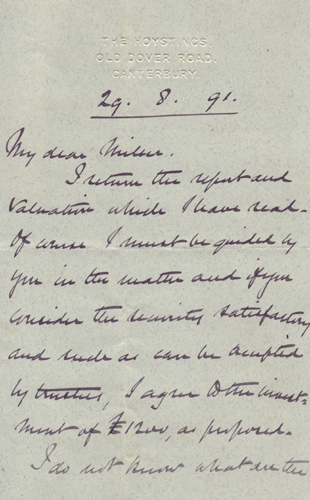 THE HOYSTINGS,
OLD DOVER ROAD,
CANTERBURY.
29. 8. 91.
My dear Milner.
I return the report and
Valuation which I have read-
Of course I must be guided by
you in the matter and if you
consider the security satisfactory
and such as can be accepted
by trustees, I agree to the invest-
ment of £1200, as proposed.
I do not know what are the